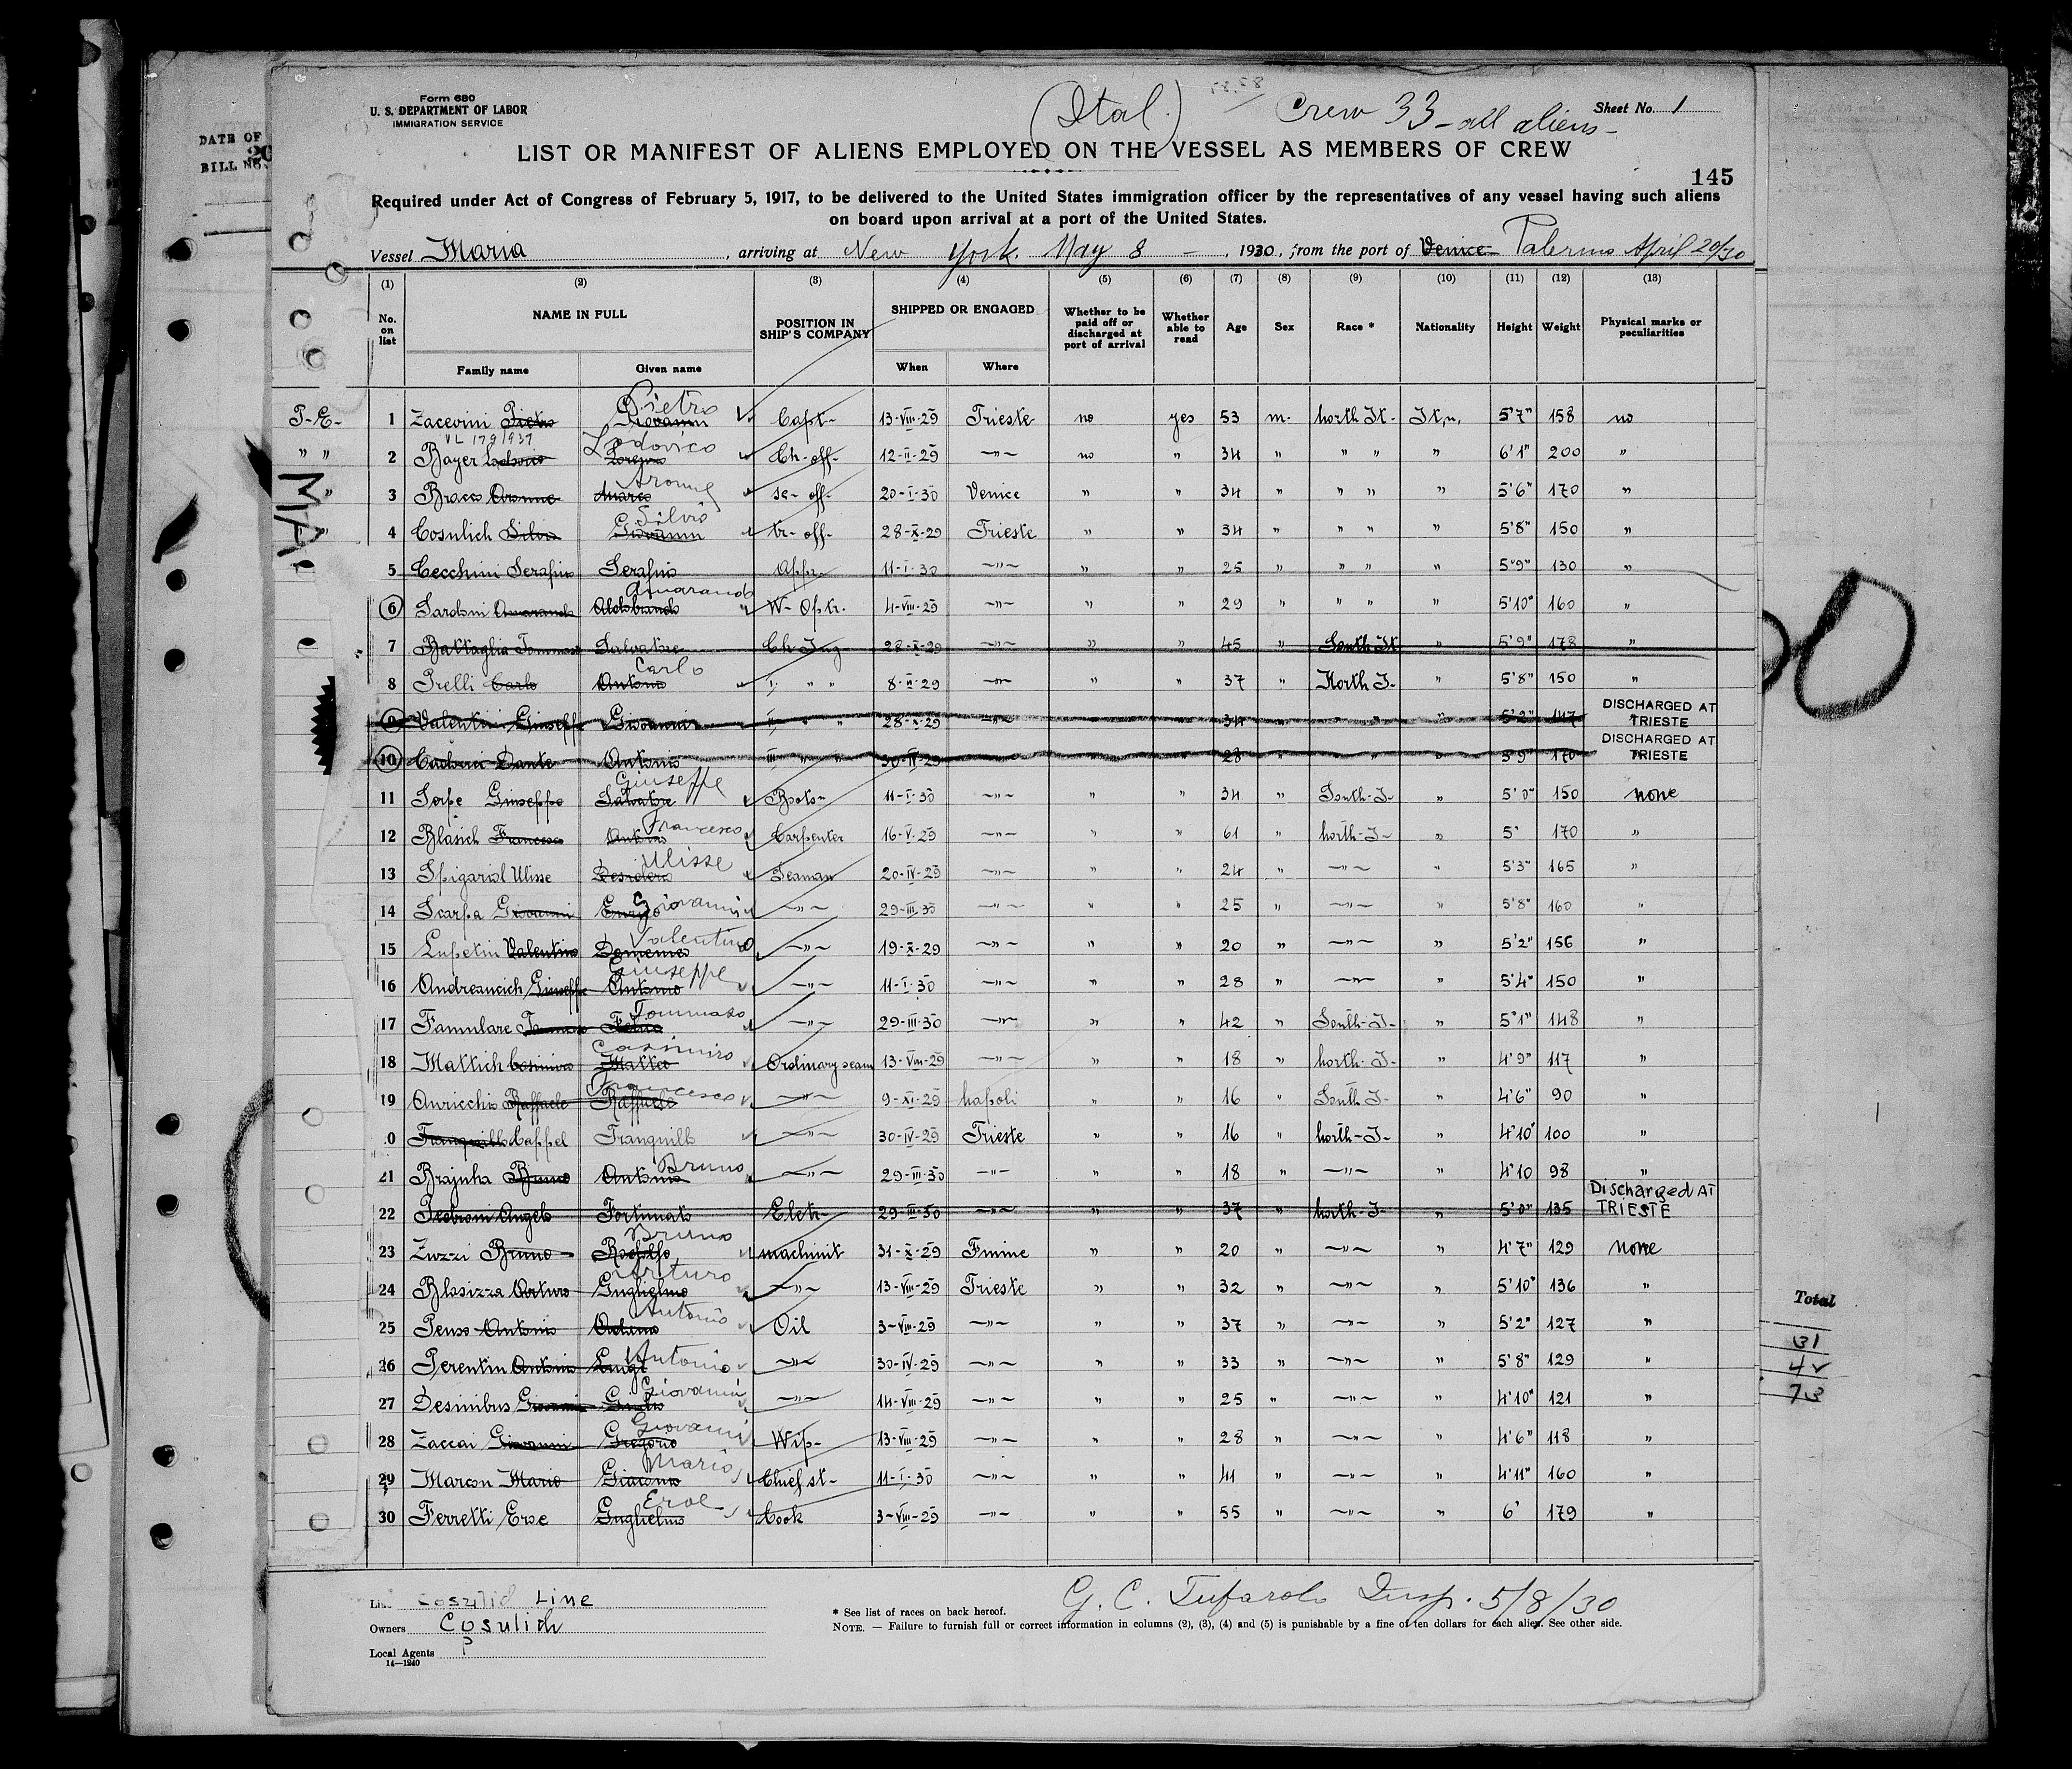 DATE OF
BILL NO.
Form 680
U. S. DEPARTMENT OF LABOR
IMMIGRATION SERVICE
(Ital.)
Crew 33 - all aliens -
Sheet No. 1
LIST OR MANIFEST OF ALIENS EMPLOYED ON THE VESSEL AS MEMBERS OF CREW
145
Required under Act of Congress of February 5, 1917, to be delivered to the United States immigration officer by the representatives of any vessel having such aliens
on board upon arrival at a port of the United States.
Vessel Maria, arriving at New York. May 8 - , 1930, from the port of Venice Palermo April 20/30
(1) (2) (3) (4) (5) (6) (7) (8) (9) (10) (11) (12) (13)
No. on list NAME IN FULL POSITION IN SHIP'S COMPANY SHIPPED OR ENGAGED Whether to be paid off or discharged at port of arrival Whether able to read Age Sex Race * Nationality Height Weight Physical marks or peculiarities
Family name Given name When Where
P-E- 1 Zacevini Pietro Giovanni Pietro Capt- 13-VIII-29 Trieste no yes 53 m. north It- Itn. 5'7" 158 no
VL 179/937
" " 2 Bayer Lodovico Lorenzo Lodovico Ch-off- 12-II-29 -"- no " 34 " " " " 6'1" 200 "
" 3 Bracco Aronne Marco Aronne se-off- 20-I-30 Venice " " 34 " " " " 5'6" 170 "
MA.
" 4 Cosulich Silvio Giovanni Silvio tr-off- 28-X-29 Trieste " " 34 " " " " 5'8" 150 "
5 Cecchini Serafino Serafino App. 11-I-30 -"- " " 25 " " " " 5'9" 130 "
6 Sardoni Amarando Aldobrando Amarando W-Optr. 4-VIII-29 -"- " " 29 " " " " 5'10" 160 "
7 Battaglia Tommaso Salvatore Ch Ing 28-X-29 -"- " " 45 " South It " 5'9" 178 "
8 Prelli Carlo Antonio Carlo I " " 8-X-29 -"- " " 37 " North I- " 5'8" 150 "
9 Valentini Giuseppe Giovanni II " " 28-X-29 -"- " " 34 " " " " 5'2" 147 DISCHARGED AT TRIESTE
10 Dante Antonio III " " 30-IV-29 " " 28 " " " " 5'9" 170 DISCHARGED AT TRIESTE
11 Sorpe Giuseppe Salvatore Giuseppe Bots- 11-I-30 -"- " " 34 " South-I- " 5'0" 150 none
12 Blasich Francesco Antonio Francesco Carpenter 16-V-29 -"- " " 61 " north-I- " 5' 170 "
13 Spigariol Ulisse Desiderio Ulisse Seaman 20-IV-29 -"- " " 24 " -"- " 5'3" 165 "
14 Scarpa Giovanni Enrico Giovanni -"- 29-III-30 -"- " " 25 " -"- " 5'8" 160 "
15 Lupetin Valentino Domenico Valentino -"- 19-X-29 -"- " " 20 " -"- " 5'2" 156 "
16 Andreancich Giuseppe Antonio Giuseppe -"- 11-I-30 -"- " " 28 " -"- " 5'4" 150 "
17 Famulare Tommaso Tommaso -"- 29-III-30 -"- " " 42 " South-I- " 5'1" 148 "
18 Mattich Casimiro Matteo Casimiro Ordinary seam 13-VIII-29 -"- " " 18 " north-I- " 4'9" 117 "
19 Auricchio Raffaele Raffaele Francesco -"- 9-XI-29 Napoli " " 16 " South I- " 4'6" 90 "
0 Tranquillo Cappel Tranquillo -"- 30-IV-29 Trieste " " 16 " north-I- " 4'10" 100 "
21 Brajnha Bruno Antonio Bruno -"- 29-III-30 -"- " " 18 " -"- " 4'10 98 "
22 Angelo Fortunato Eletr- 29-III-30 -"- " " 37 " north-I- " 5'0" 135 Discharged AT TRIESTE
23 Zuzzi Bruno Rodolfo Bruno machinit 31-X-29 Fiume " " 20 " -"- " 4'7" 129 none
24 Blasizza Arturo Guglielmo Arturo -"- 13-VIII-29 Trieste " " 32 " -"- " 5'10" 136 "
25 Penso Antonio Antonio Oil 3-VIII-29 -"- " " 37 " -"- " 5'2" 127 "
26 Perentin Antonio Luigi Antonio -"- 30-IV-29 -"- " " 33 " -"- " 5'8" 129 "
27 Desinibus Giovanni Giulio Giovanni -"- 14-VIII-29 -"- " " 25 " -"- " 4'10" 121 "
28 Zaccai Giovanni Gregorio Giovanni Wip- 13-VIII-29 -"- " " 28 " -"- " 4'6" 118 "
29 Marcon Mario Giacomo Mario Chief st- 11-I-30 -"- " " 41 " -"- " 4'11" 160 "
30 Ferretti Eroe Guglielmo Eroe Cook 3-VIII-29 -"- " " 55 " -"- " 6' 179 "
Total
31
42
73
Cosulich Line
Owners Cosulich
Local Agents ?
14—1240
* See list of races on back hereof.
G. C. Tufarolo Insp. 5/8/30
NOTE. — Failure to furnish full or correct information in columns (2), (3), (4) and (5) is punishable by a fine of ten dollars for each alien. See other side.